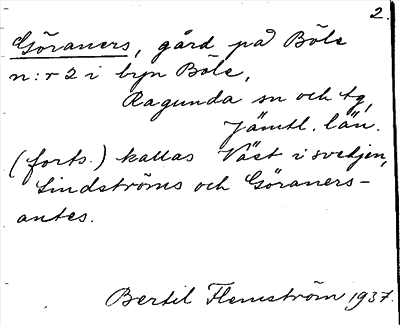 2.
Göraners, gård på Böle
n:r 2 i byn Böle,
Ragunda sn och tg,
Jämtl. län.
(forts.) kallas Väst i svedjen,
Lindströms och Göraners-
antes.
Bertil Flemström 1937.